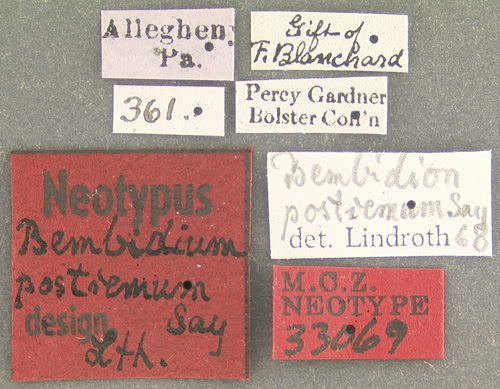 Allegheny
Pa.
Gift of
F. Blanchard
361.
Percy Gardner
Bolster Coll'n
Neotypus
Bembidium
postremum
design. Say
Lth.
Bembidion
postremum Say
det. Lindroth 68
M.C.Z.
NEOTYPE
33069